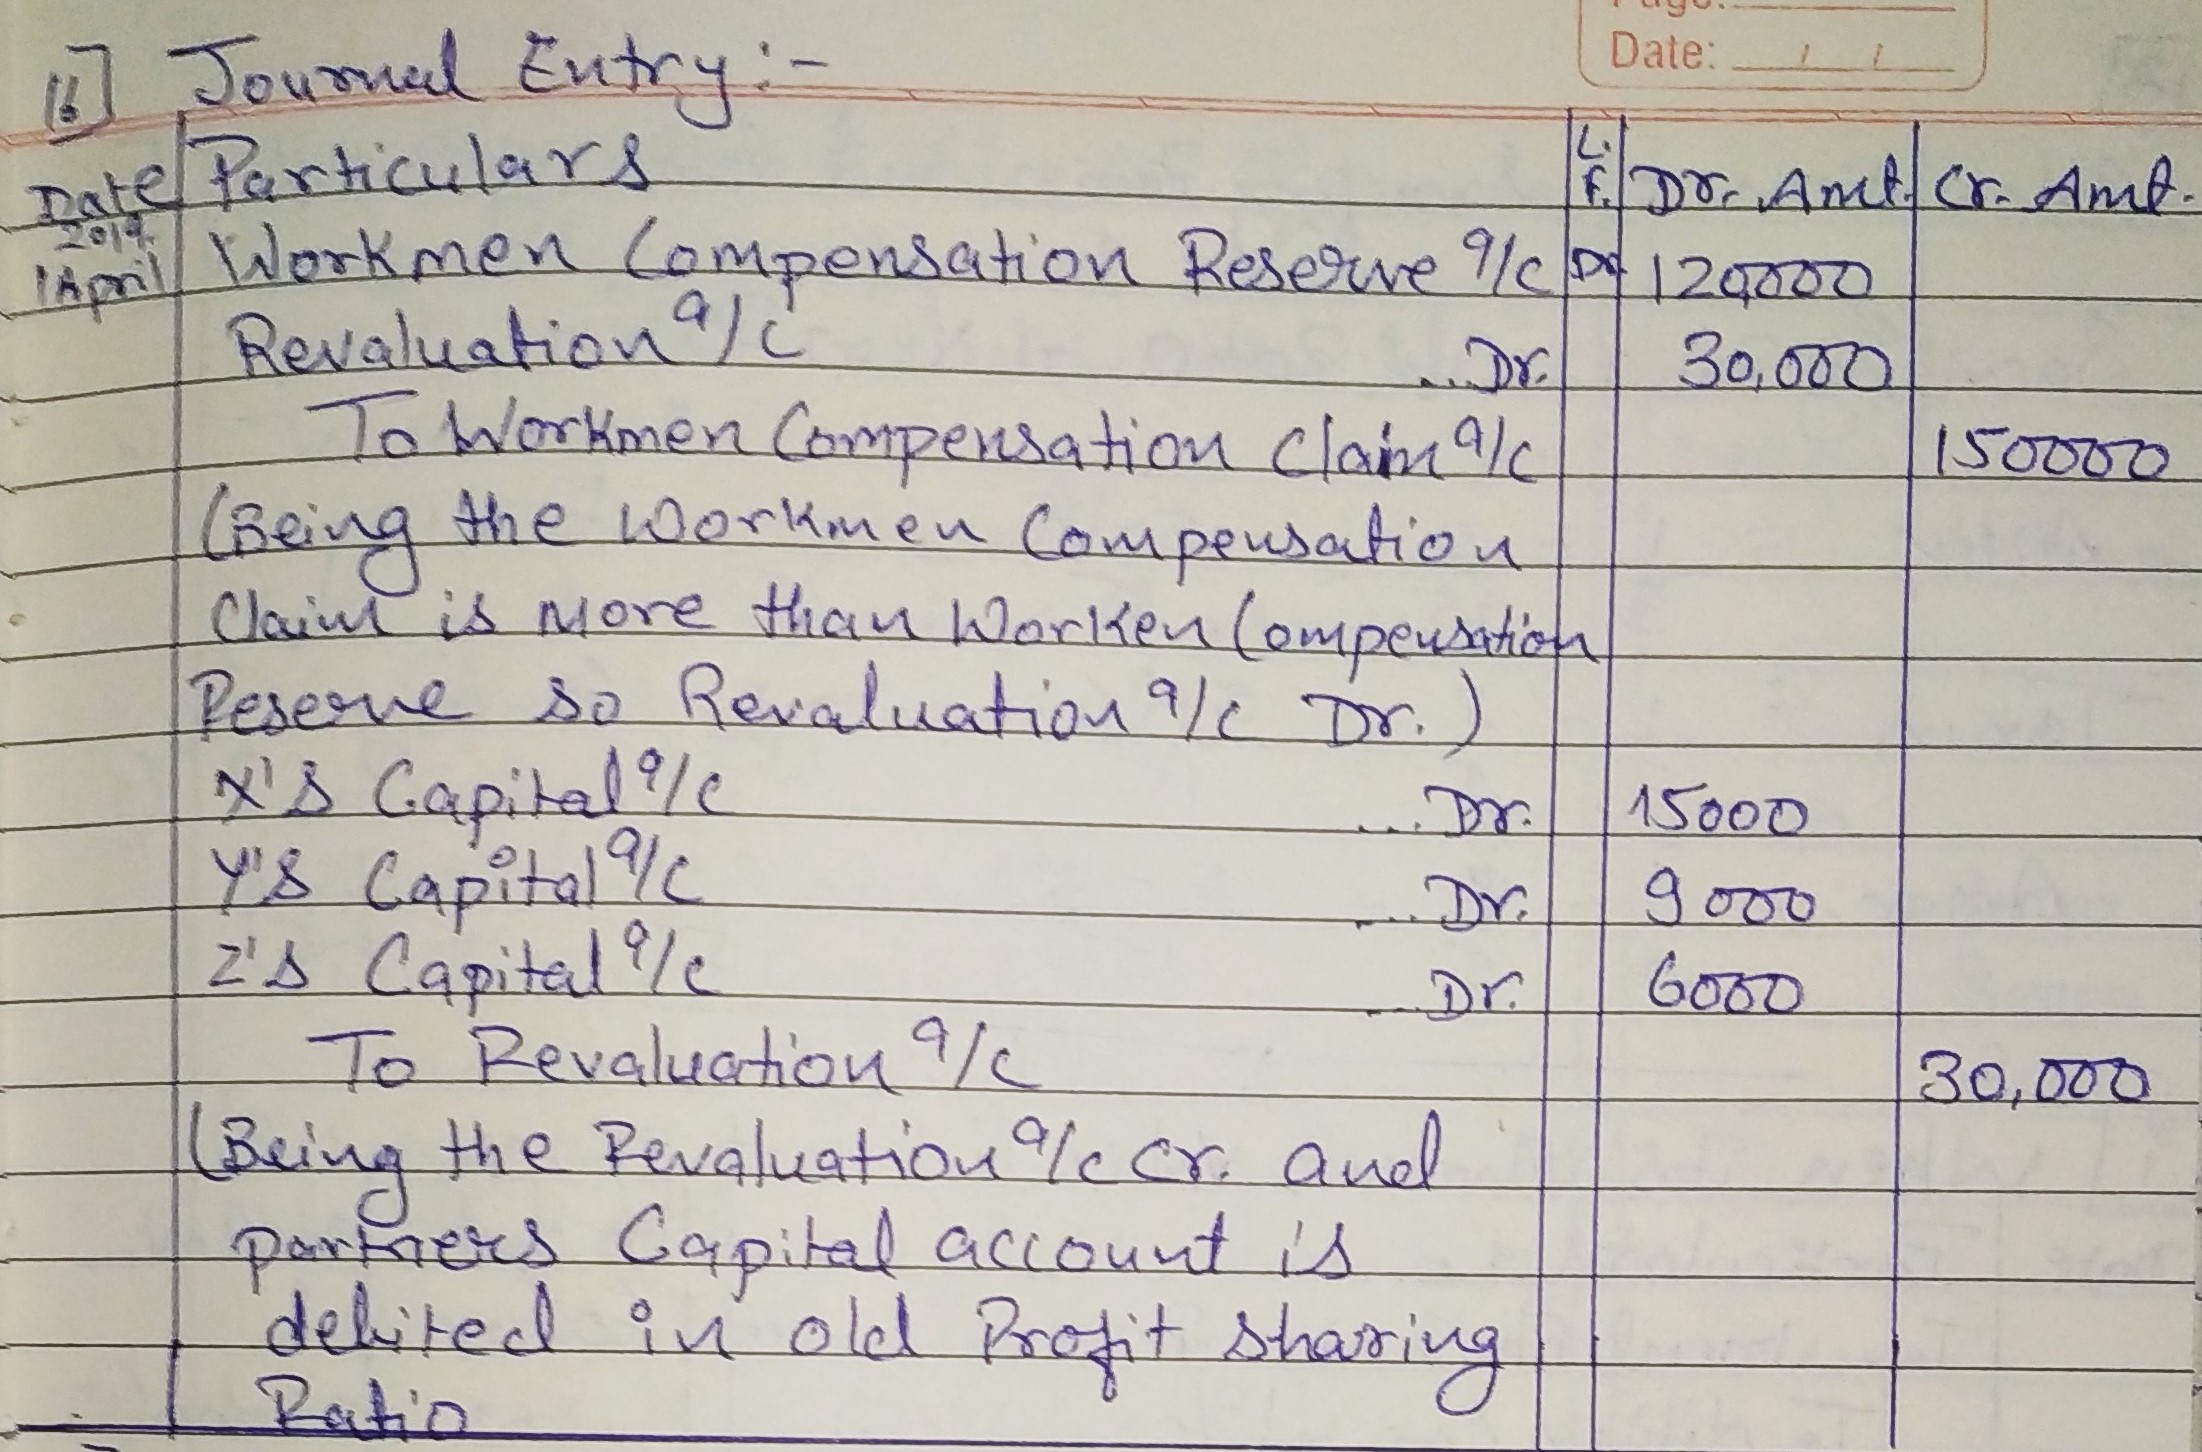 Page:
Date: / /
16] Journal Entry:-
Date Particulars L.F. Dr. Amt. Cr. Amt.
2019
1 April Workmen Compensation Reserve a/c Dr 120,000
Revaluation a/c ...Dr. 30,000
To Workmen Compensation Claim a/c 150000
(Being the Workmen Compensation
Claim is more than Worken Compensation
Reserve so Revaluation a/c Dr.)
X's Capital a/c ... Dr. 15000
Y's Capital a/c ... Dr. 9000
Z's Capital a/c ... Dr. 6000
To Revaluation a/c 30,000
(Being the Revaluation a/c Cr. and
partners Capital account is
debited in old Profit sharing
Ratio